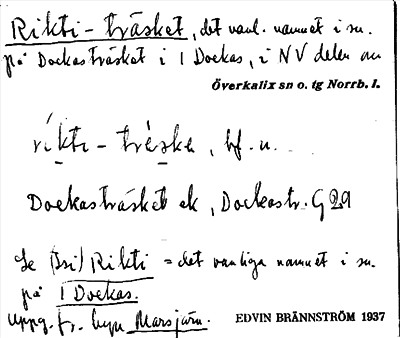 Rikti-träsket, det vanl. namnet i sn.
på Dockasträsket i 1 Dockas, i NV delen av
Överkalix sn o. tg Norrb. l.
rikti-träske, bf. n.
Dockasträsket ek, Dockastr. G 29
Se (bsi) Rikti = det vanliga namnet i sn.
på 1 Dockas.
Uppg. fr. byn Marsjärn.
EDVIN BRÄNNSTRÖM 1937